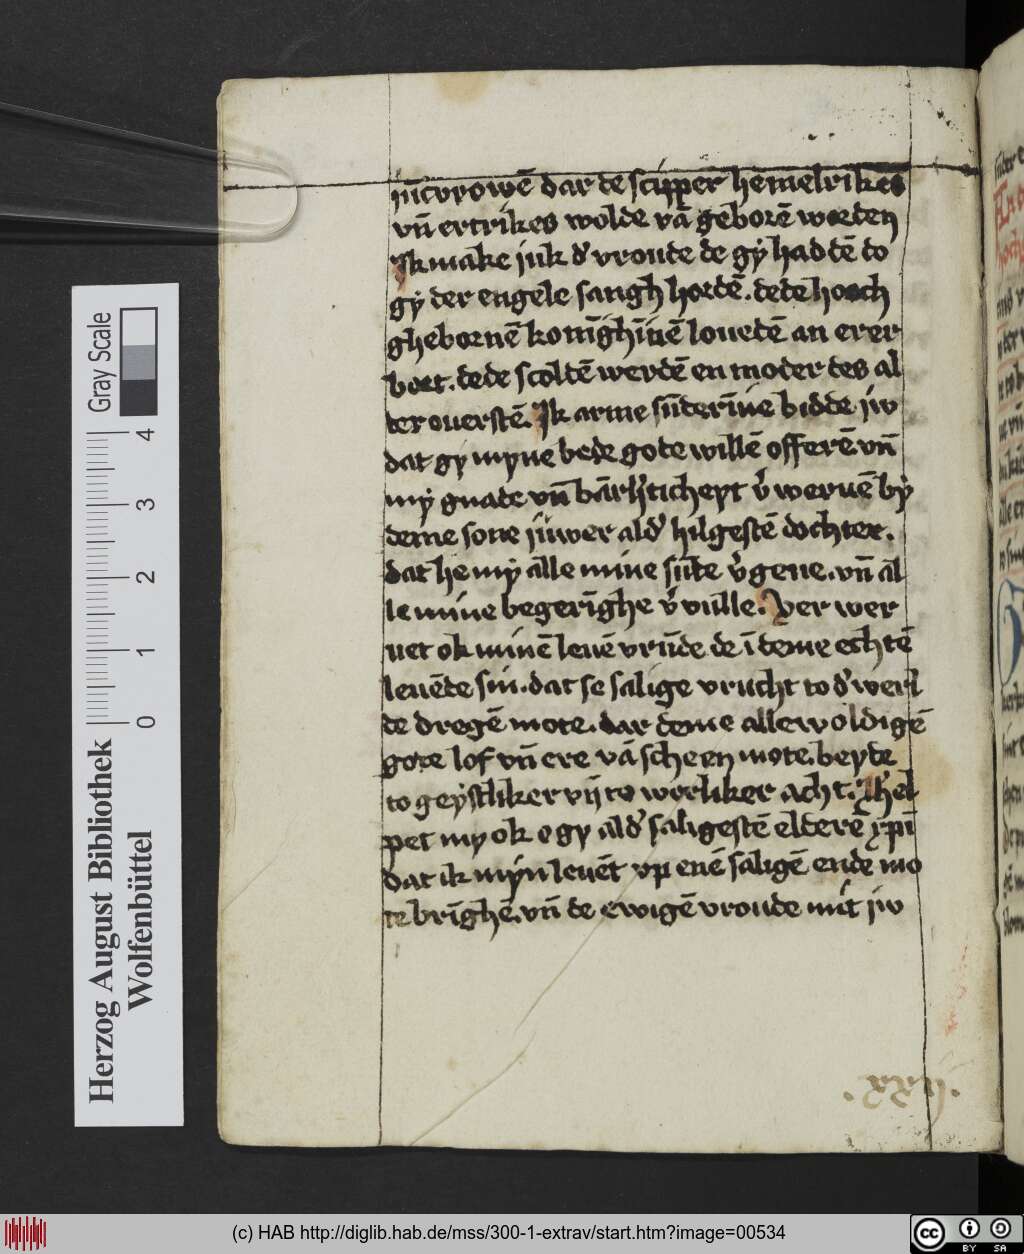 iūcvrowē dar de scipper hemelrikes
vn̄ ertrikes wolde vā geborē werden
Ik make juk d' vroude de gẏ hadtē do
gẏ der engele sangh hordē. dede hoech
ghebornē konīghīnē louetē an erer
bort. dede scoldē werdē en moder des al
der ouerstē. Ik arme sūderīne bidde jw
dat gy myne bede gote willē offerē vn̄
mẏ gnade vn̄ bārh'ticheyt v'weruē bẏ
deme sone juwer ald' hilgestē dochter.
dat he mẏ alle mine sūde v'geue. vn̄ al
le mine begerīghe v'vulle. Ver wer
uet ok minē leuē vrūde de ī deme echtē
leuēde sin. dat se salige vrucht to d' werl
de dregē mote. dar deme allewoldigē
gote lof vn̄ ere vā scheen mote. beyde
to geẏstliker vn̄ to werliker acht. Hel
pet my ok o gy ald' saligestē elderē xp̄i
dat ik mẏn leuēt vp enē saligē ende mo
te brīghē. vn̄ de ewigē vroude mit jw
.xxxij.
Herzog August Bibliothek
Wolfenbüttel
0 1 2 3 4
Gray Scale
(c) HAB http://diglib.hab.de/mss/300-1-extrav/start.htm?image=00534
cc BY SA